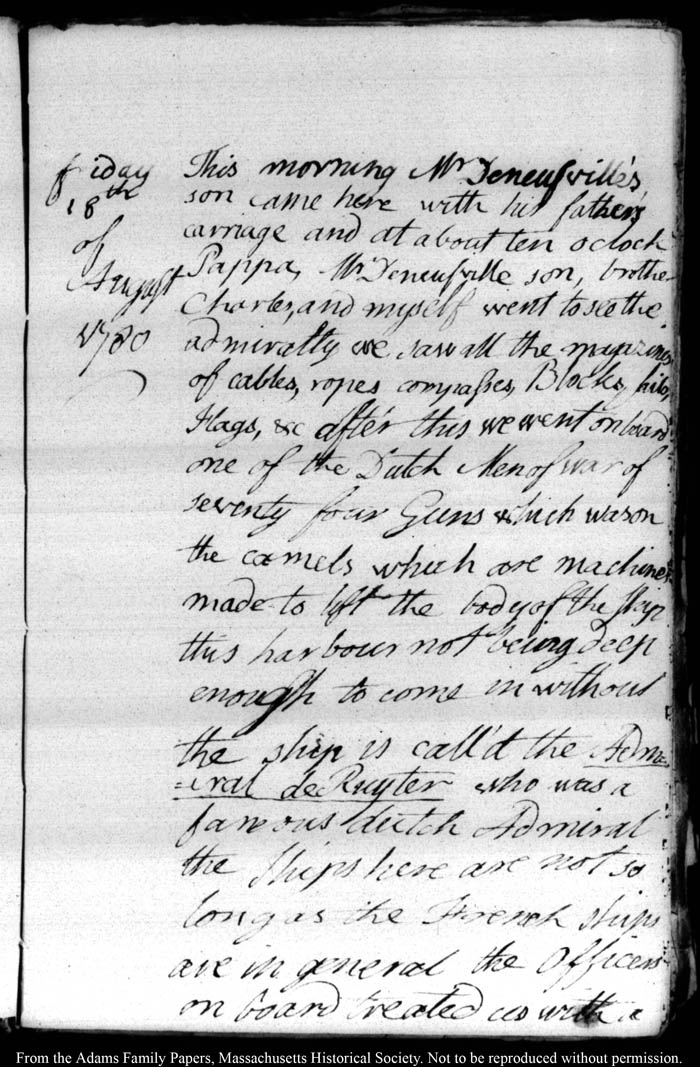 friday
18th
of
August
1780
This morning Mr Deneufville's
son came here with his father's
carriage and at about ten oclock
Pappa, Mr Deneufville son, brother
Charles, and myself went to see the
admiralty we saw all the magazines
of cables, ropes compasses, Blocks,
Flags, &c after this we went on board
one of the Dutch Men of war of
seventy four Guns which was on
the camels which are machines
made to lift the body of the ship
this harbour not being deep
enough to come in without
the ship is call'd the Adm=
=iral de Ruyter who was a
famous dutch Admiral
the ships here are not so
long as the French ships
are in general the Officers
on board treated us with a
From the Adams Family Papers, Massachusetts Historical Society. Not to be reproduced without permission.